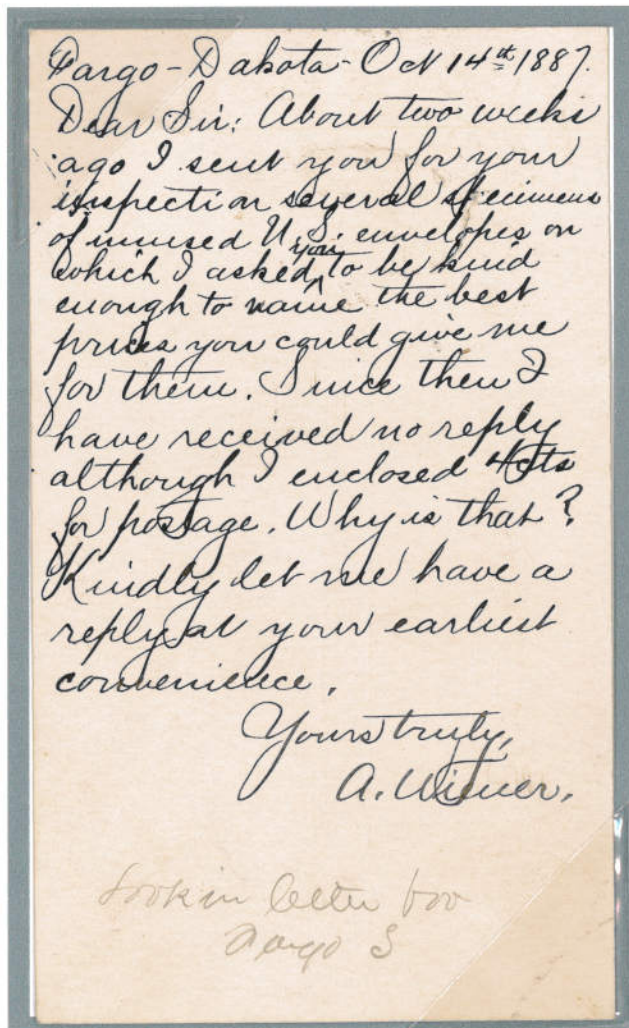 Fargo - Dakota - Oct 14th 1887.
Dear Sir: About two weeks
ago I sent you for your
inspection several specimens
of unused U.S. envelopes on
which I asked you to be kind
enough to name the best
prices you could give me
for them. Since then I
have received no reply
although I enclosed 4cts
for postage. Why is that?
Kindly let me have a
reply at your earliest
convenience.
Yours truly,
A.
Look in letter box
Fargo